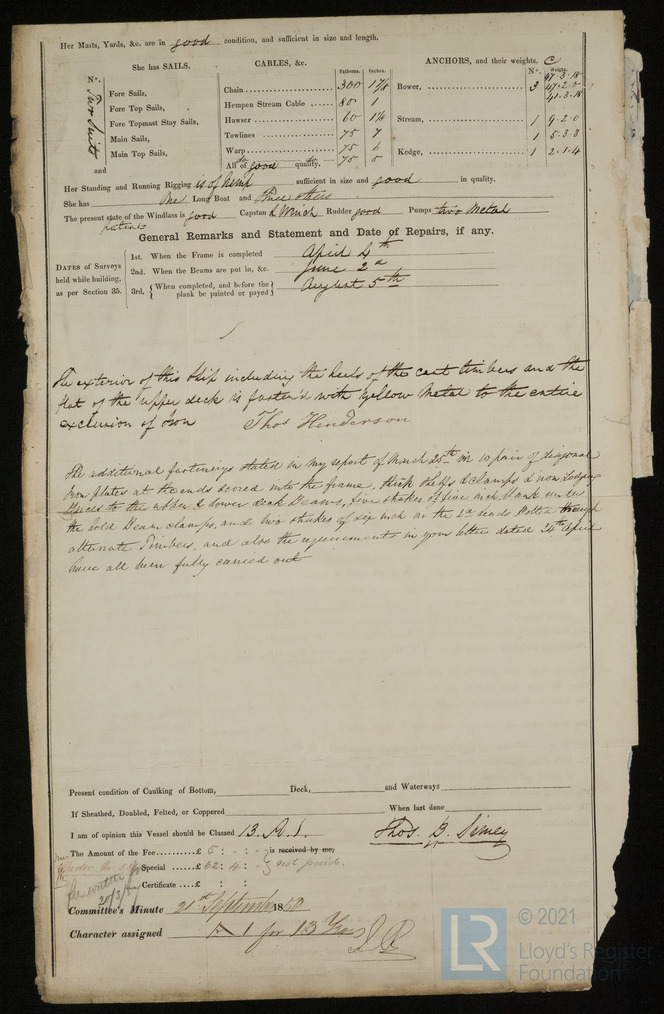 Her Masts, Yards, &c. are in good condition, and sufficient in size and length.
She has SAILS.
CABLES, &c.
Fathoms. Inches.
ANCHORS, and their weights.
No. Weight.
No.
Two Suits
Fore Sails,
Fore Top Sails,
Fore Topmast Stay Sails,
Main Sails,
Main Top Sails,
and
Chain 300 1 7/8
Hempen Stream Cable 80 1
Hawser 60 1 1/8
Towlines 75 7
Warp 75 6
All of good quality. 75 5
47.3.18
Bower, 3 47.2.0
41.3.18
Stream, 1 9.2.0
1 5.3.3
Kedge, 1 2.1.4
Her Standing and Running Rigging is of Hemp sufficient in size and good in quality.
She has One Long Boat and Three others
The present state of the Windlass is good Capstan & Winch Rudder good Pumps two Metal
patent
General Remarks and Statement and Date of Repairs, if any.
DATES of Surveys held while building, as per Section 35.
1st. When the Frame is completed April 4th
2nd. When the Beams are put in, &c. June 2d
3rd. { When completed, and before the plank be painted or payed } August 5th
The exterior of this Ship including the heels of the cant timbers and the
flat of the upper deck is fasten'd with yellow Metal to the entire
exclusion of Iron Thos Henderson
The additional fastenings stated in my report of March 25th viz 10 pair of diagonal
Iron plates at the ends scored into the frame, thick shelfs & clamps & iron Lodging
Knees to the upper & lower deck Beams, five strakes of five inch plank under
the hold Beam clamps, and two strakes of six inch on the 1st heads bolted through
alternate Timbers, and also the requirements in your letter dated 24th April
have all been fully carried out
Present condition of Caulking of Bottom, Deck, and Waterways
If Sheathed, Doubled, Felted, or Coppered When last done
I am of opinion this Vessel should be Classed 13. A. 1.
Thos. B. Simey
The Amount of the Fee £ 5 : - : - is received by me,
Special £ 62 : 4 : - not paid.
Certificate £ : :
Committee's Minute 21st September 1850
Character assigned A 1 for 13 Years
© 2021
LR
Lloyd's Register
Foundation